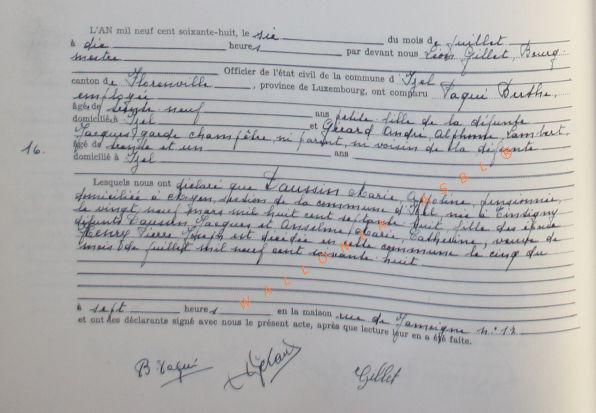 L'AN mil neuf cent soixante-huit, le six du mois de juillet
à dix heures par devant nous Léon Gillet, Bourg-
mestre
Officier de l'état civil de la commune d'Izel
canton de Florenville, province de Luxembourg, ont comparu Paqui Berthe,
employée
âgée de trente neuf ans petite fille de la défunte
domiciliée à Izel et Gérard André, Alphonse, Lambert,
Jacques, garde champêtre, ni parent, ni voisin de la défunte
16. âgé de trente et un ans
domicilié à Izel
Lesquels nous ont déclaré que Taussin Marie, Appoline, pensionnée,
domiciliée à Moyen, section de la commune d'Izel, née à Tintigny
le vingt neuf mars mil huit cent septante huit, fille des époux
défunts Taussin Jacques et Anselme Marie, Catherine, veuve de
Henry Pierre Joseph est décédée en cette commune le cinq du
mois de juillet mil neuf cent soixante huit
à sept heures en la maison rue de Jamoigne n° 12
et ont les déclarants signé avec nous le présent acte, après que lecture leur en a été faite.
B Paqui Gérard Gillet
WALLONIA ASBL ©